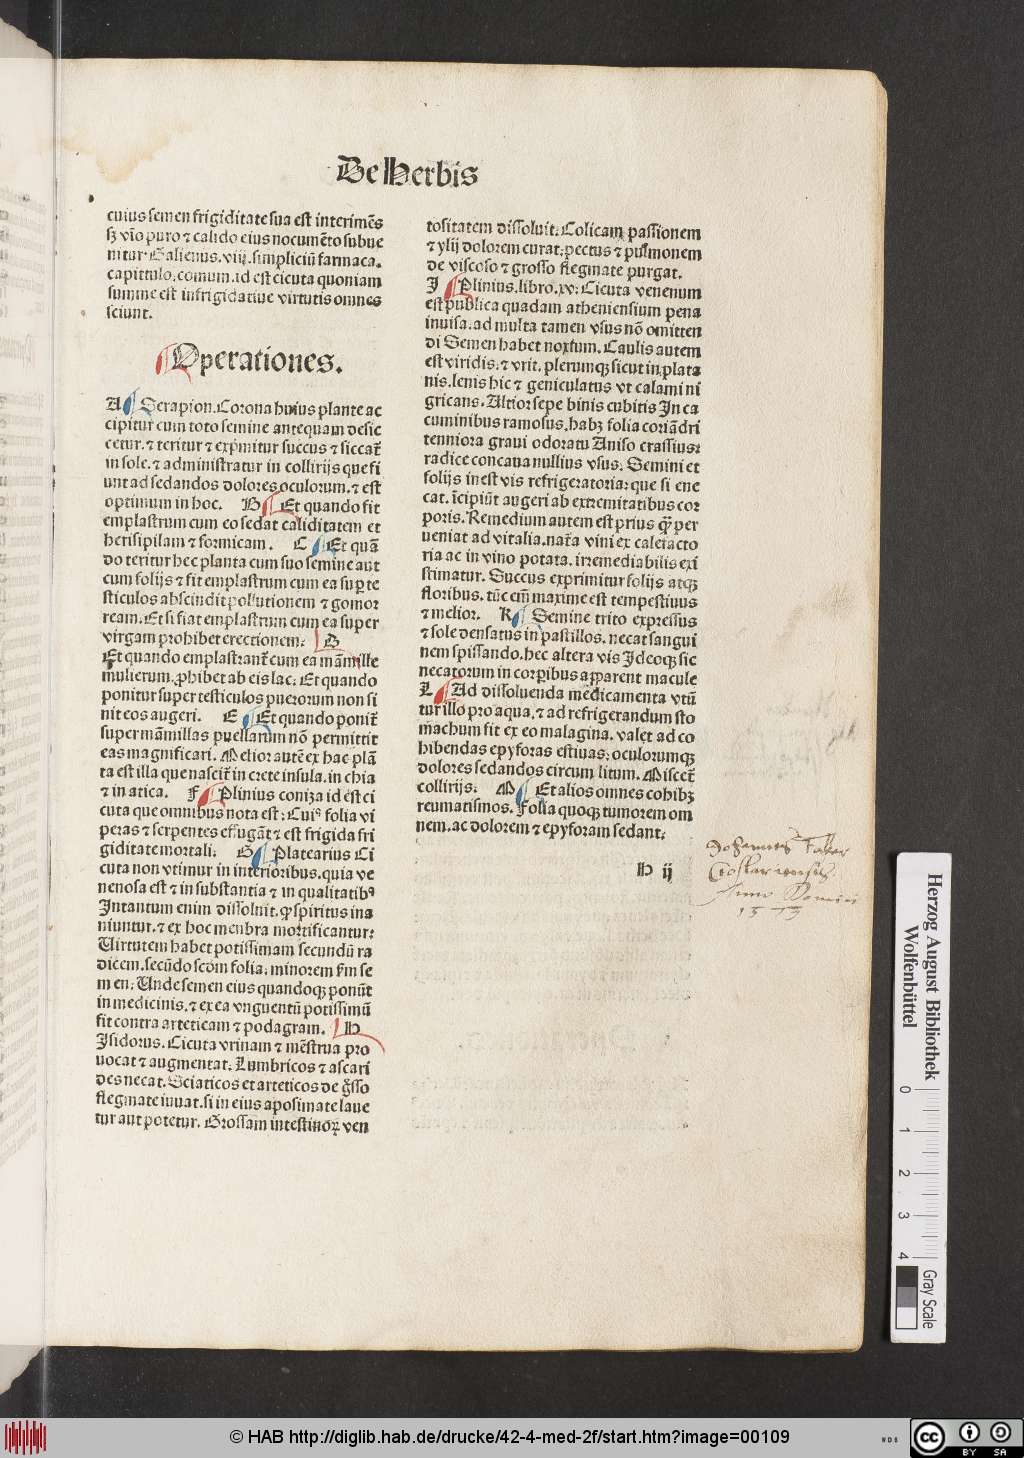 De Herbis
cuius semen frigiditate sua est interimēs
sȝ vīo puro ⁊ calido eius nocumēto subue
nitur. Galienus. viij. simpliciū farmaca.
capittulo. comum. id est cicuta quoniam
summe est infrigidatiue virtutis omnes
sciunt.
Operationes.
A Serapion. Corona huius plante ac
cipitur cum toto semine antequam desic
cetur. ⁊ teritur ⁊ exprimitur succus ⁊ siccat̄
in sole. ⁊ administratur in collirijs que fi
unt ad sedandos dolores oculorum. ⁊ est
optimum in hoc. B Et quando fit
emplastrum cum eo sedat caliditatem et
herisipilam ⁊ formicam. C Et quā
do teritur hec planta cum suo semine aut
cum folijs ⁊ fit emplastrum cum ea super te
sticulos abscindit pollutionem ⁊ gomor
ream. Et si fiat emplastrum cum ea super
virgam prohibet erectionem. D
Et quando emplastrant̄ cum ea māmille
mulierum. ꝓhibet ab eis lac: Et quando
ponitur super testiculos puerorum non si
nit eos augeri. E Et quando ponit̄
super māmillas puellarum nō permittit
eas magnificari. Melior autē ex hac plā
ta est illa que nascit̄ in crete insula. in chia
⁊ in atica. F Plinius coniza id est ci
cuta que omnibus nota est: Cuiꝰ folia vi
peras ⁊ serpentes effugāt ⁊ est frigida fri
giditate mortali: G Platearius Ci
cuta non vtimur in interioribus. quia ve
nenosa est ⁊ in substantia ⁊ in qualitatibꝰ
Intantum enim dissoluit. ꝙ spiritus ina
niuntur. ⁊ ex hoc menbra mortificantur:
Virtutem habet potissimam secundū ra
dicem. secūdo scōm folia. minorem s̄m se
men: Unde semen eius quandoqȝ ponūt
in medicinis. ⁊ ex ea vnguentū potissimū
fit contra arteticam ⁊ podagram. H
Isidorus. Cicuta vrinam ⁊ mēstrua pro
uocat ⁊ augmentat: Lumbricos ⁊ ascari
des necat. Sciaticos et arteticos de g̊sso
flegmate iuuat. si in eius aposimate laue
tur aut potetur. Grossam intestinoꝝ ven
tositatem dissoluit: Colicam passionem
⁊ ylij dolorem curat: pectus ⁊ pulmonem
de viscoso ⁊ grosso flegmate purgat.
I Plinius. libro. xv: Cicuta venenum
est publica quadam atheniensium pena
inuisa. ad multa tamen vsus nō omitten
di Semen habet noxium. Caulis autem
est viridis: ⁊ vrit. plerumqȝ sicut in plata
nis. lenis hic ⁊ geniculatus vt calami ni
gricans. Altior sepe binis cubitis In ca
cuminibus ramosus. habȝ folia coriādri
tenniora graui odoratu Aniso crassius:
radice concaua nullius vsus: Semini et
folijs inest vis refrigeratoria: que si ene
cat. īcipiūt augeri ab extremitatibus cor
poris. Remedium autem est prius q̄ȝ per
ueniat ad vitalia. nat̄a vini ex calefacto
ria ac in vino potata. irremediabilis exi
stimatur. Succus exprimitur folijs atqȝ
floribus. tūc em̄ maxime est tempestiuus
⁊ melior. K Semine trito expressus
⁊ sole densatus in pastillos. necat sangui
nem spissando. hec altera vis Idcoqȝ sic
necatorum in corꝑibus apparent macule
L Ad dissoluenda medicamenta vtū
tur illo pro aqua. ⁊ ad refrigerandum sto
m̄achum fit ex eo malagina. valet ad co
hibendas epyforas estiuas: oculorumqȝ
dolores sedandos circum litum. Miscet̄
collirijs: M Et alios omnes cohibȝ
reumatismos. Folia quoqȝ tumorem om
nem. ac dolorem ⁊ epyforam sedant:
H ij
Johannes Faber
Anno Domini
1573
Herzog August Bibliothek
Wolfenbüttel
0 1 2 3 4
Gray Scale
© HAB http://diglib.hab.de/drucke/42-4-med-2f/start.htm?image=00109
WDB
cc BY SA